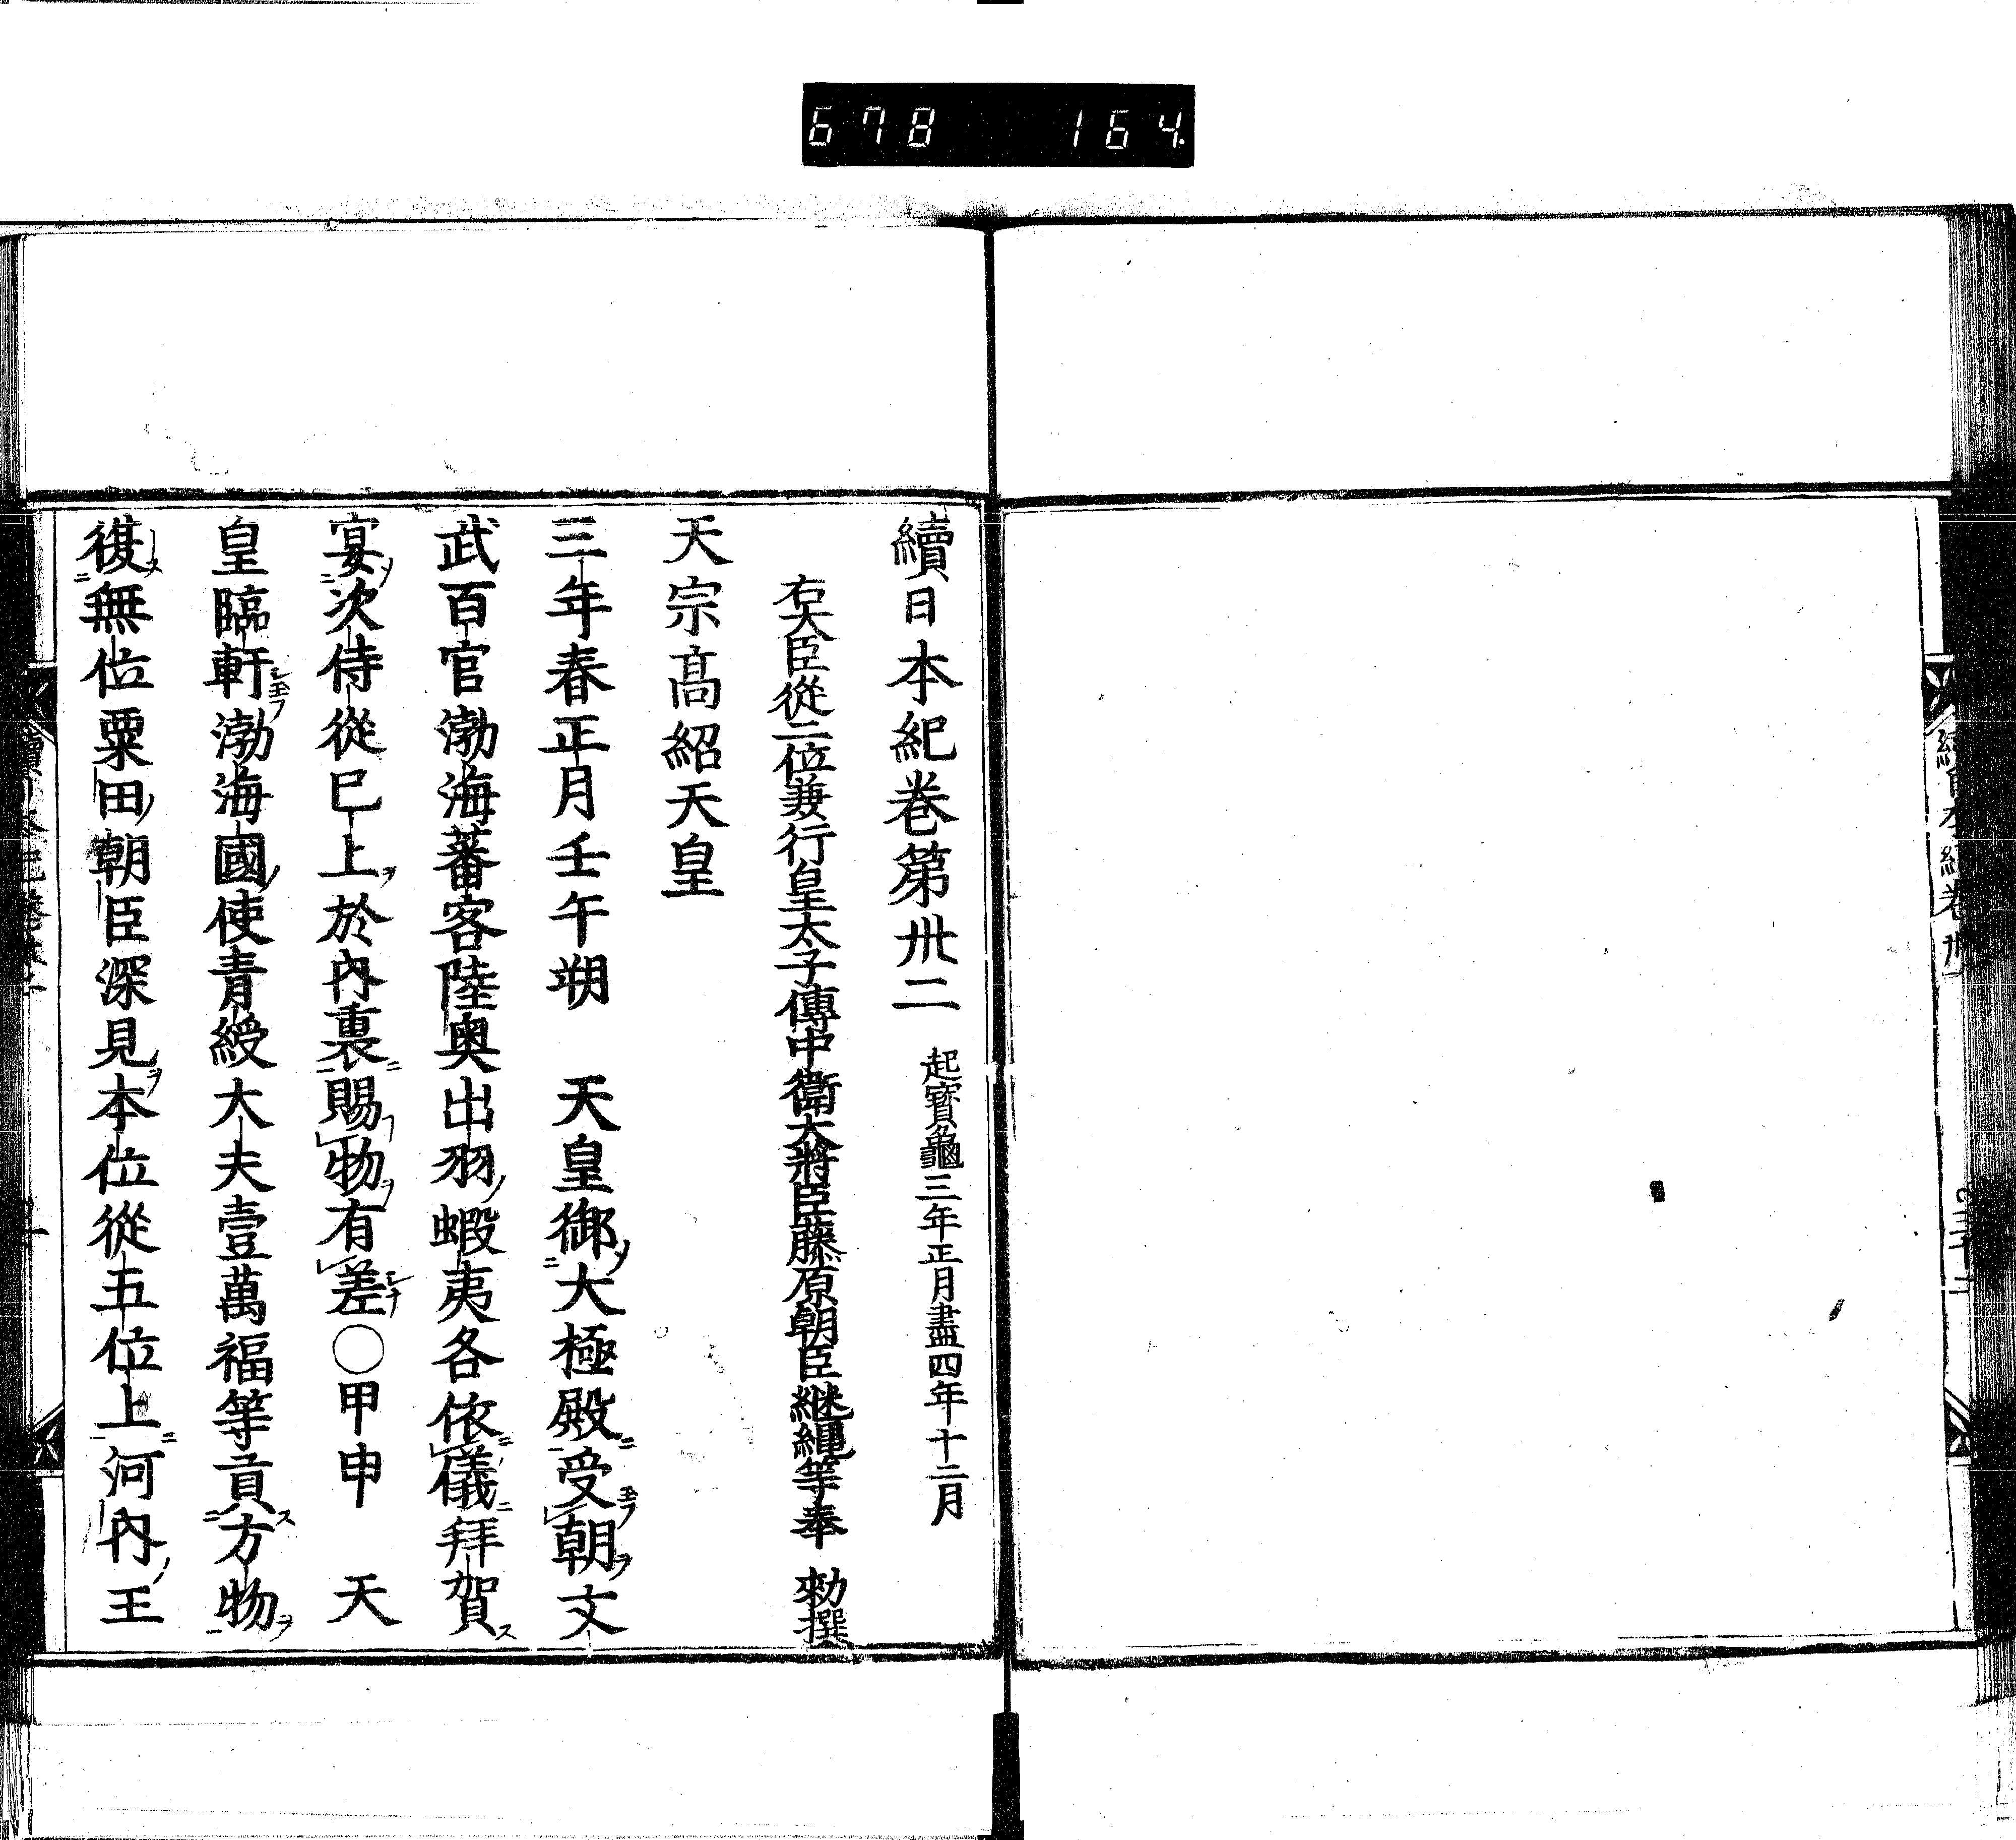 678 164
續日本紀卷第卅二 起寶龜三年正月盡四年十二月
右大臣從二位兼行皇太子傳中衛大將臣藤原朝臣継繩等奉 勅撰
天宗髙紹天皇
三年春正月壬午朔 天皇御大極殿受朝文
武百官渤海蕃客陸奥出羽蝦夷各依儀拜賀
宴次侍從已上於內裏賜物有差○甲申 天
皇臨軒渤海國使青綬大夫壹萬福等貢方物
復無位粟田朝臣深見本位從五位上河內王